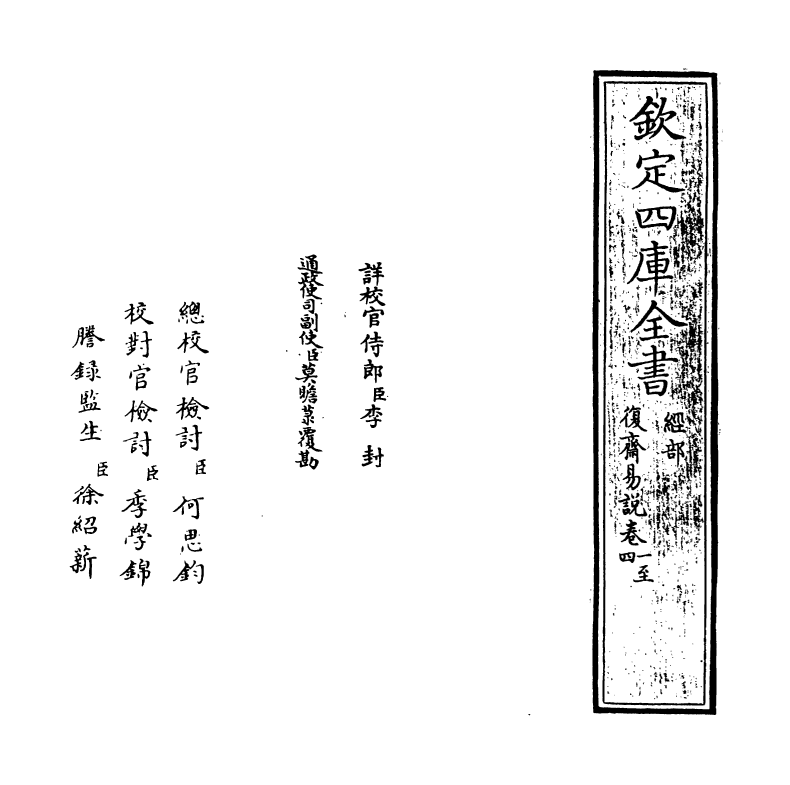 欽定四庫全書
經部
復齋易說卷一至四
詳校官侍郎臣李封
通政使司副使臣莫瞻菉覆勘
總校官檢討臣何思鈞
校對官檢討臣季學錦
謄錄監生臣徐紹薪